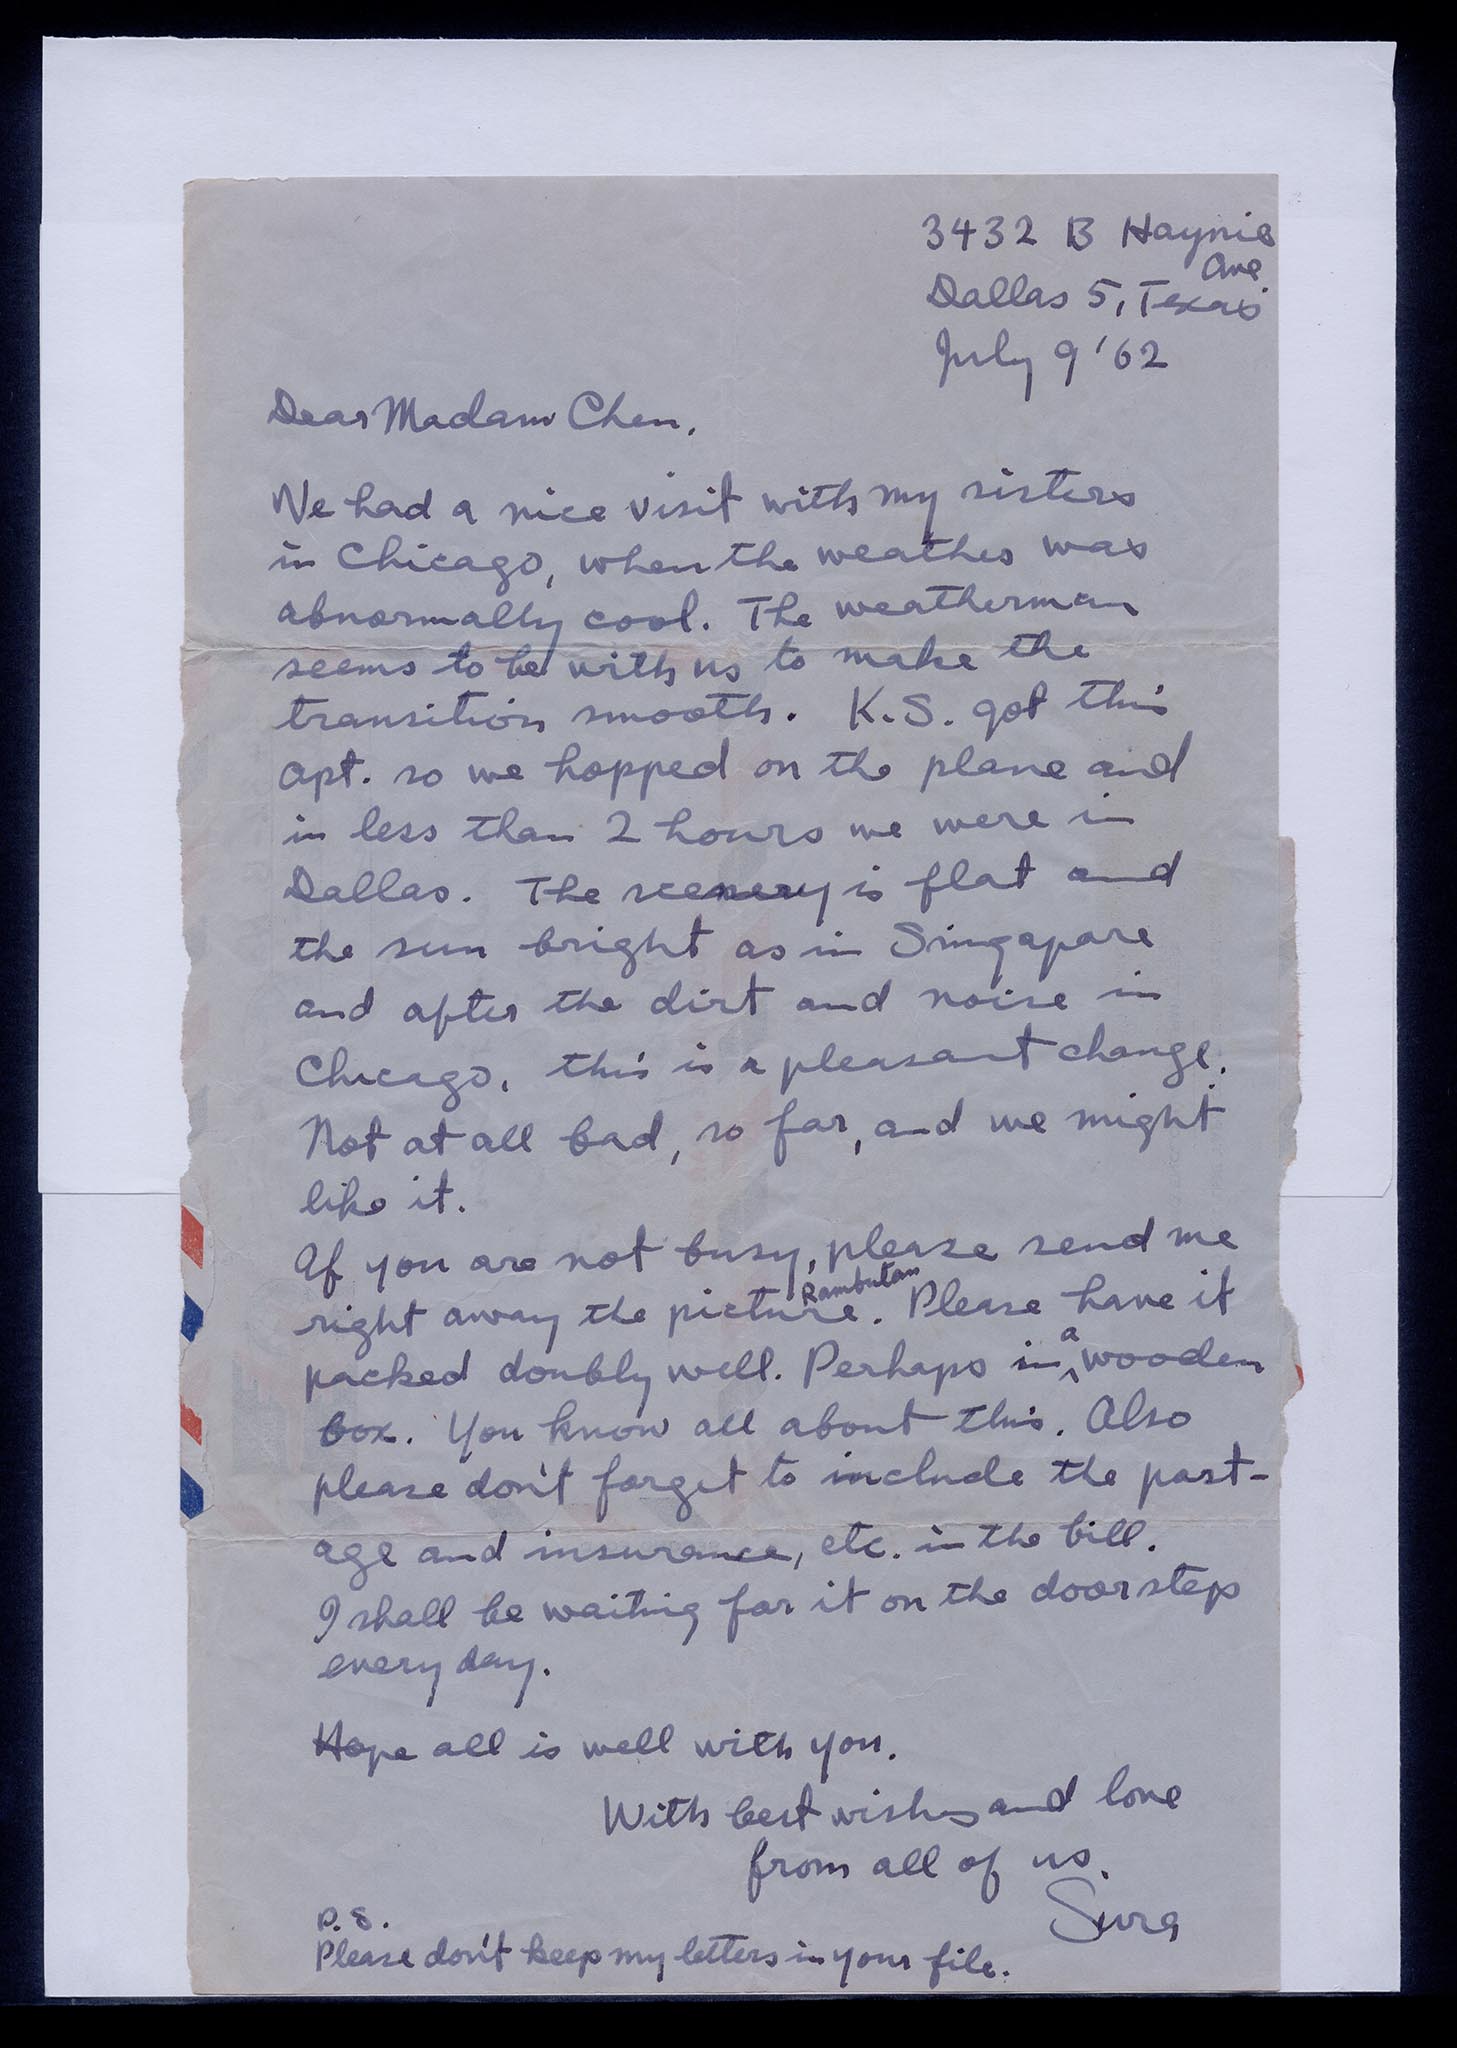 3432 B Haynie
Ave.
Dallas 5, Texas
July 9 '62
Dear Madam Chen,
We had a nice visit with my sisters
in Chicago, when the weather was
abnormally cool. The weatherman
seems to be with us to make the
transition smooth. K.S. got this
apt. so we hopped on the plane and
in less than 2 hours we were in
Dallas. The scenery is flat and
the sun bright as in Singapore
and after the dirt and noise in
Chicago, this is a pleasant change.
Not at all bad, so far, and we might
like it.
If you are not busy, please send me
Rambutan
right away the picture. Please have it
packed doubly well. Perhaps in a wooden
box. You know all about this. Also
please don't forget to include the post-
age and insurance, etc. in the bill.
I shall be waiting for it on the doorsteps
every day.
Hope all is well with you.
With best wishes and love
from all of us.
Sura
P.S.
Please don't keep my letters in your file.